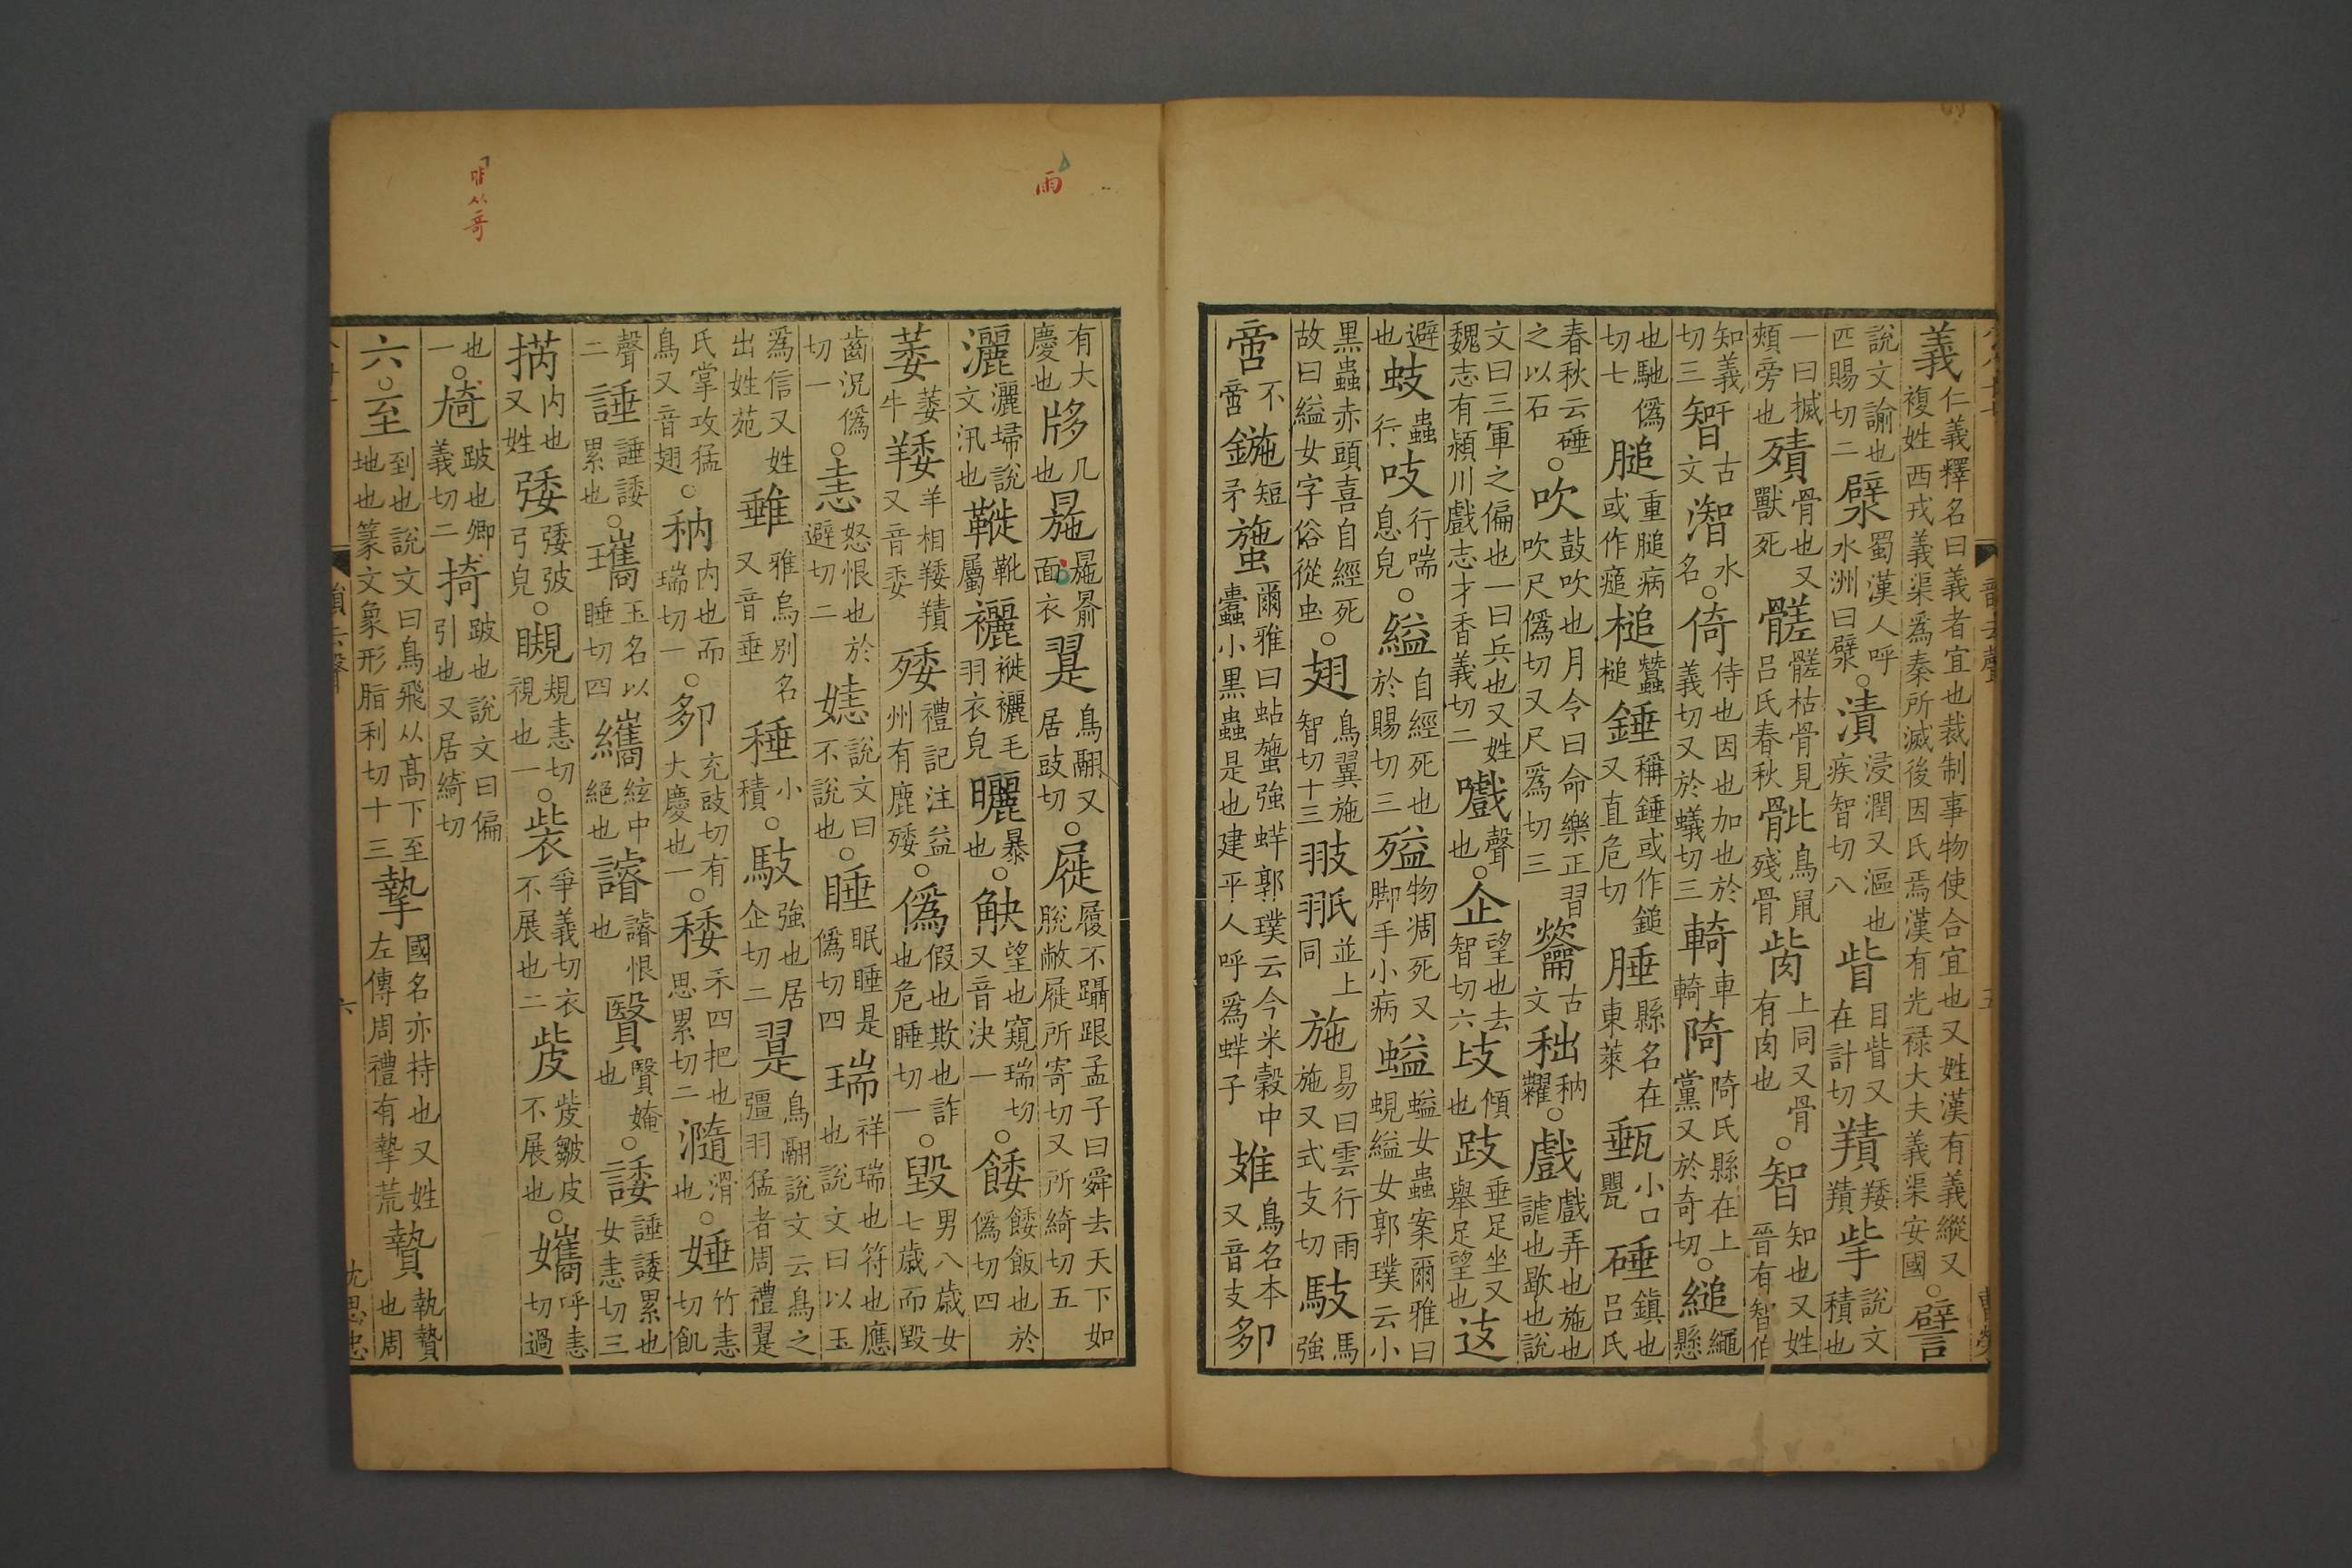 義仁義釋名曰義者宜也裁制事物使合宜也又姓漢有義縱又複姓西戎義渠爲秦所滅後因氏焉漢有光禄大夫義渠安國○譬
說文諭也匹賜切二 𣿍蜀漢人呼水洲曰𣿍○漬浸潤又漚也疾智切八 眥目眥又在計切 羵羵羠 㧘說文積也
一曰搣頰旁也 殨骨也又獸死 髊髊枯骨見吕氏春秋 骴鳥鼠殘骨 胔上同又骨有肉也○智知也又姓晉有智伯
知義切三 𥏼古文 潪水名○倚侍也因也加也於義切又於蟻切三 輢車輢 陭陭氏縣在上黨又於奇切○縋繩懸
也馳僞切七 膇重膇病或作㿗 槌蠶槌 錘稱錘或作鎚又直危切 腄縣名在東萊 甀小口甖 硾鎮也吕氏
春秋云硾之以石○吹鼓吹也月令曰命樂正習吹尺僞切又尺爲切三 龡古文 䄲䅖䊪○戲戲弄也施也謔也歇也說
文曰三軍之偏也一曰兵也又姓魏志有潁川戲志才香義切二 嚱聲也○企望也去智切六 䟗傾也 跂垂足坐又舉足望也 𨑤
避也 蚑蟲行 吱行喘息皃○縊自經死也於賜切三 㱲物凋死又脚手小病 螠螠女蟲案爾雅曰蜆縊女郭璞云小
黑蟲赤頭喜自經死故曰縊女字俗從虫○翅鳥翼施智切十三 翄𦐊並上同 施易曰雲行雨施又式支切 䮈馬強
啻不啻 䥲短矛 𧍀爾雅曰蛄𧍀強蛘郭璞云今米穀中蠹小黒蟲是也建平人呼爲蛘子 䧴鳥名本又音支 𠨕
有大慶也 㢋几也 暆暆㬱面衣 翨鳥翮又居豉切○屣履不躡跟孟子曰舜去天下如脫敝屣所寄切又所綺切五
灑灑埽說文汛也 鞁靴屬 襹褷襹毛羽衣皃 曬暴也○觖望也窺瑞切又音決一○餧餧飯也於僞切四
萎萎牛 羠羊相羠羵又音委 㱣禮記注益州有鹿㱣○僞假也欺也詐也危睡切一○毀男八歲女七歲而毀
齒況僞切一○恚怒恨也於避切二 㛂說文曰不說也○睡眠睡是僞切四 瑞祥瑞也符也應也說文曰以玉
爲信又姓出姓苑 雖雅烏別名又音垂 㮔小積○䮈強也居企切二 翨鳥翮說文云鳥之彊羽猛者周禮翨
氏掌攻猛鳥又音翅○䄲内也而瑞切一○𠨕充豉切有大慶也一○䅑禾四把也思累切二 瀡滑也○娷竹恚切飢
聲二 諈諈諉累也○瓗玉名以睡切四 纗絃中絕也 讉讉恨也 䝨䝨媕也○諉諈諉累也女恚切三
㨅内也又姓 㢻㢻弥弓皃○瞡規恚切視也一○裝爭義切衣不展也二 㿱㿱皺皮不展也○孈呼恚切過
也一○㩻跛也卿義切二 掎跛也說文曰偏引也又居綺切
六○至到也說文曰鳥飛从高下至地也篆文象形脂利切十三 摯國名亦持也又姓左傳周禮有摯荒 贄執贄也周
雨
明从奇